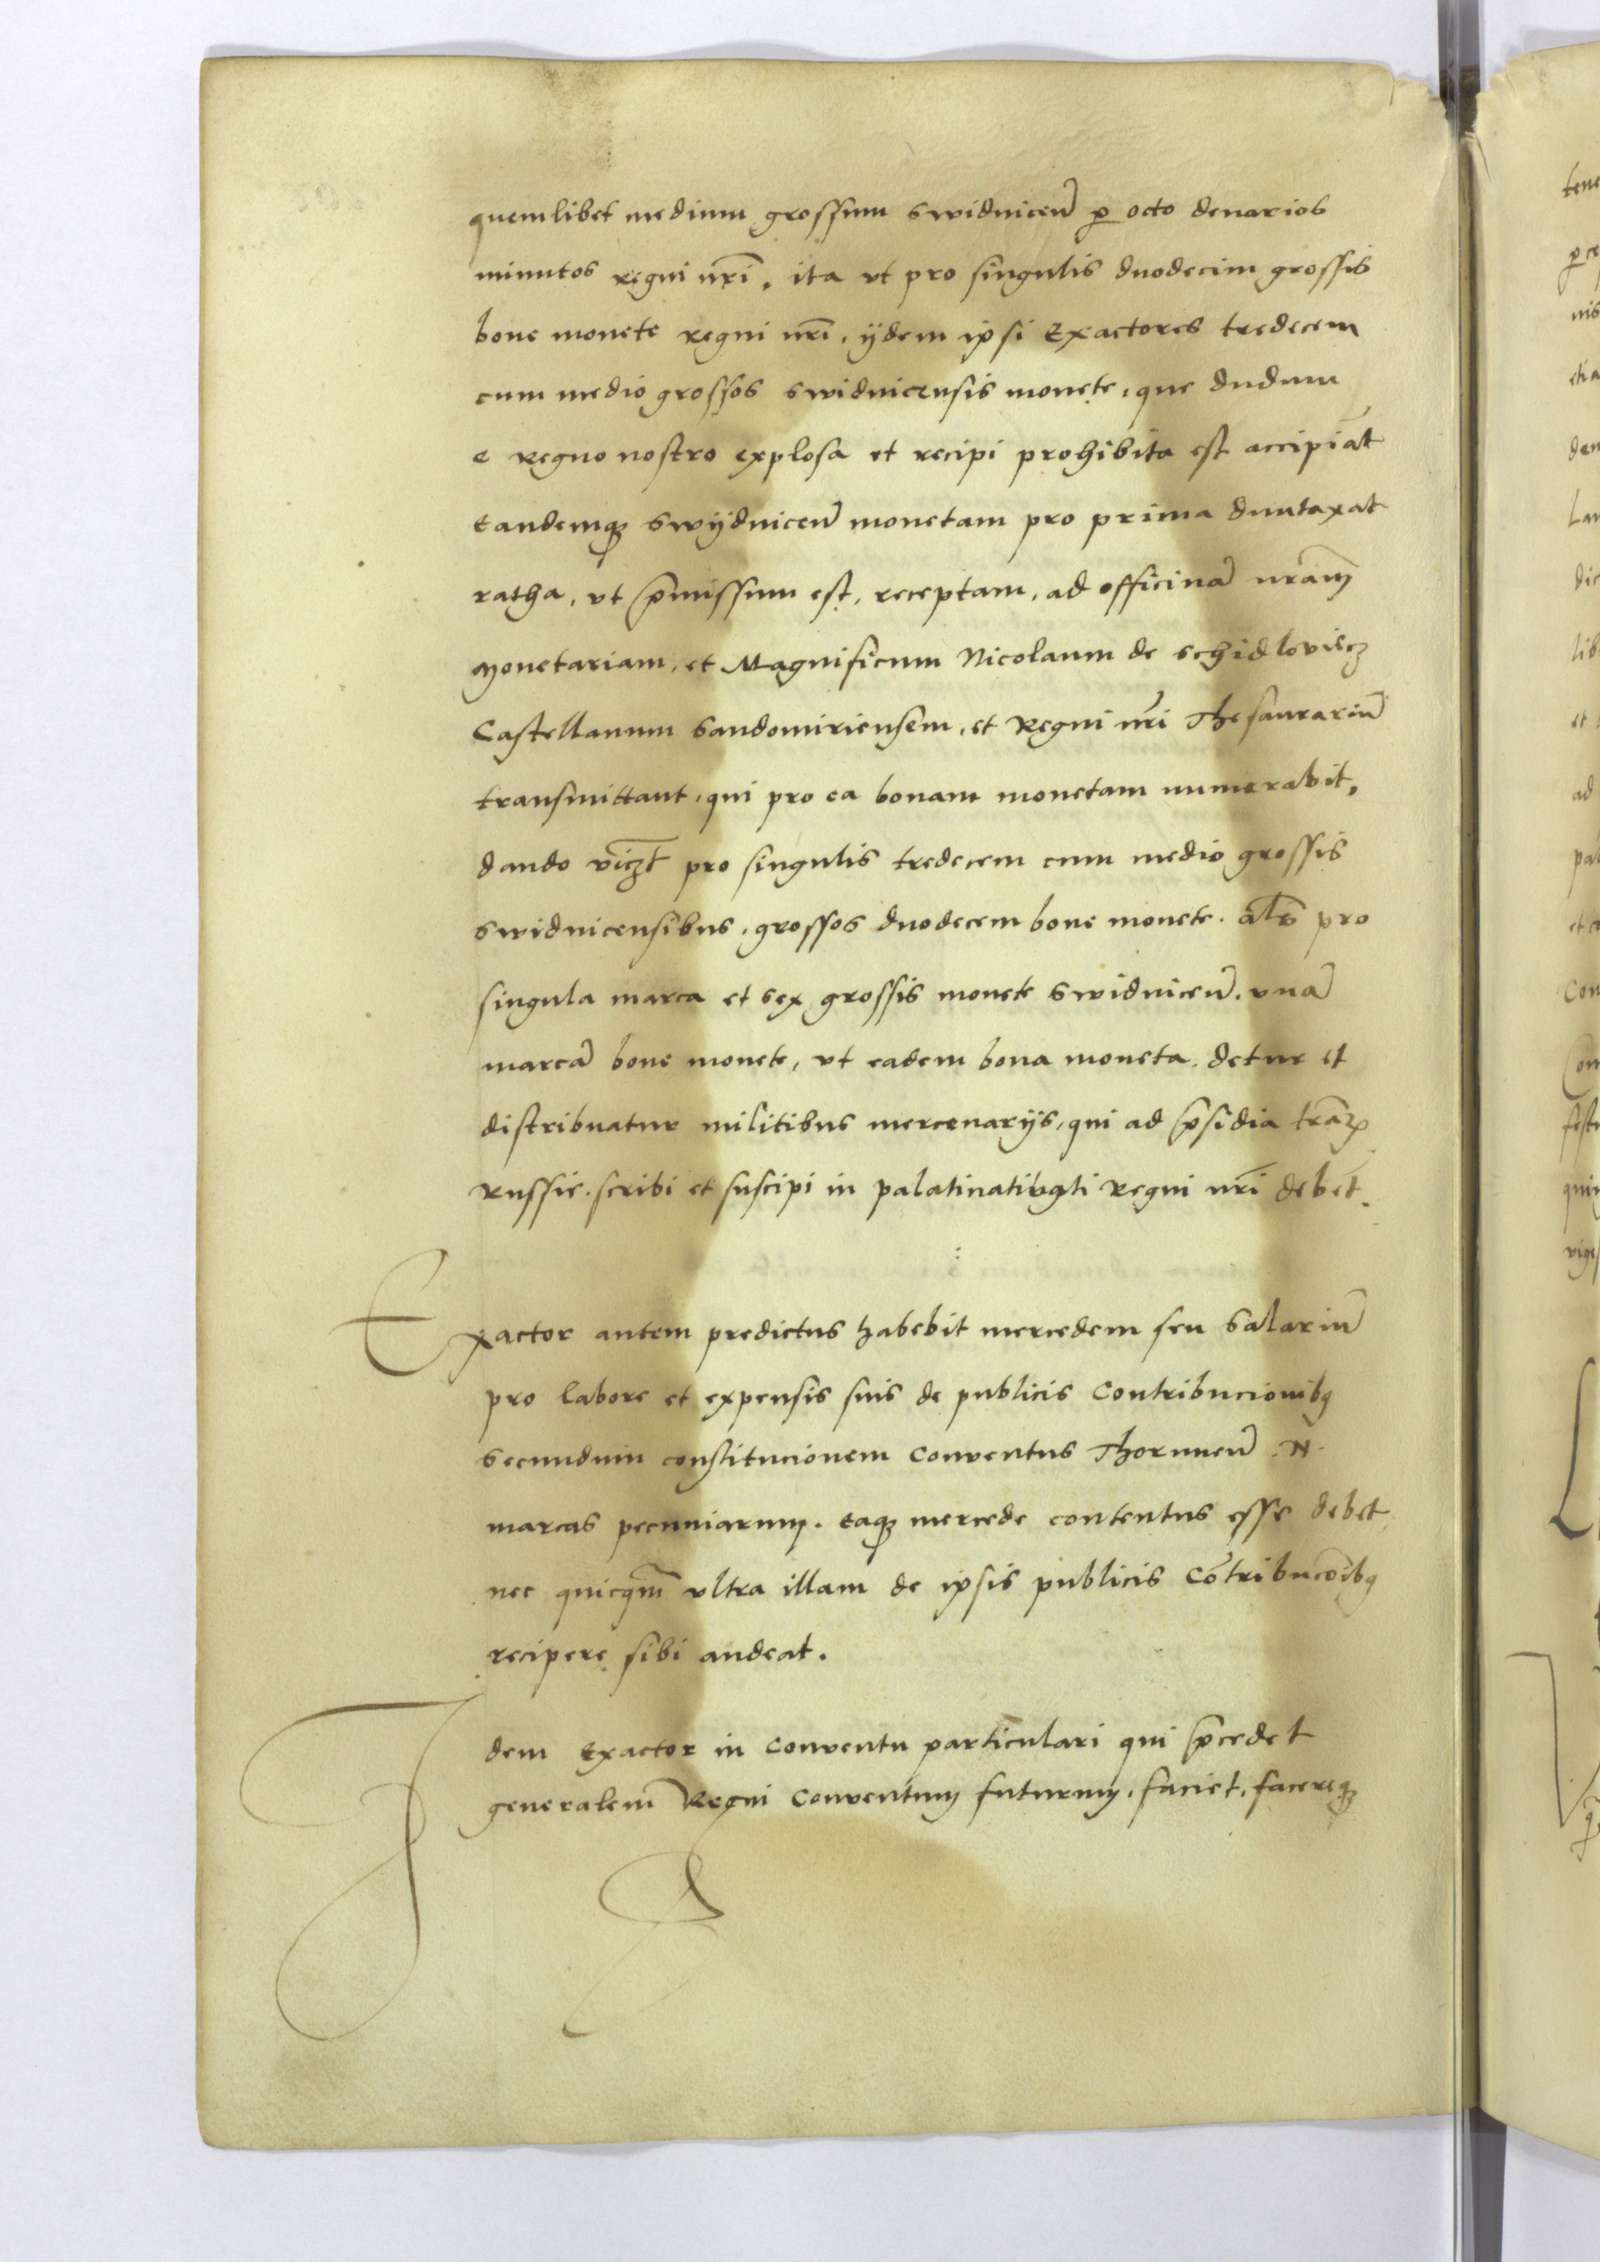 quemlibet medium grossum swidniceñ p octo denarios
minutos regni nr̃i, ita vt pro singulis duodecim grossis
bone monete regni nr̃i, ijdem ipsi Exactores tredecem
cum medio grossos swidnicensis monete, que dudum
e Regno nostro explosa et recipi prohibita est accipiãt
Eandemq3 swijdniceñ monetam pro prima duntaxat
ratha, vt p̃missum est, receptam, ad officinã nr̃am
Monetariam, et Magnificum Nicolaum de schidloviecz
Castellanum Sandomiriensem, et Regni nr̃i Thesaurariũ
transmittant, qui pro ea bonam monetam numerabit,
dando vicz̃t pro singulis tredecem cum medio grossis
swidnicensibus, grossos duodecem bone monete. al̃s pro
singula marca et sex grossis monete swidniceñ, vnã
marcã bone monete, vt eadem bona moneta detur et
distribuatur militibus mercenarijs, qui ad p̃sidia trãꝝ
Russie scribi et suscipi in palatinatibq̃ti Regni nr̃i debẽt.
Exactor autem predictus habebit mercedem seu Salariũ
pro labore et expensis suis de publicis Contribucionibꝯ
secundum constitucionem Conventus Thoruneñ .N.
marcas pecuniarum. Eaq3 mercede contentus esse debet
nec quicq̃m vltra illam de ipsis publicis Cõtribucõibꝯ
recipere sibi audeat.
Idem Exactor in Conventu particulari qui p̃cedet
generalem Regni Conventum futurum, faciet, facereq3